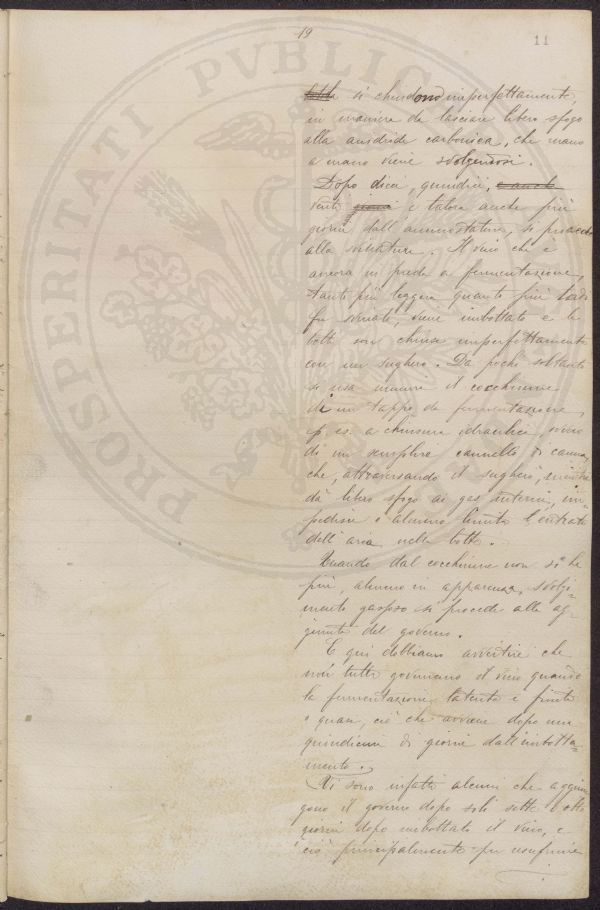 19
11
si chiudono imperfettamente,
in maniera da lasciare libero sfogo
alla anidride carbonica, che mano
a mano viene svolgendosi.
Dopo dieci, quindici,
venti e talora anche più
giorni dall'ammostatura, si procede
alla svinatura. Il vino che è
ancora in preda a fermentazione,
tanto più leggera quanto più tardi
fu svinato, viene imbottato e le
botti son chiuse imperfettamente
con un sughero. Da pochi soltanto
si usa munire il cocchiume
di un tappo da fermentazione,
p. es. a chiusura idraulica, ovvero
di un semplice cannello di canna
che, attraversando il sughero, mentre
dà libero sfogo ai gas interni, im-
pedisce o almeno limita l'entrata
dell'aria nella botte.
Quando dal cocchiume non si ha
più, almeno in apparenza, svolgi-
mento gasoso si procede alla ag-
giunta del governo.
E qui dobbiamo avvertire che
non tutti governano il vino quando
la fermentazione latente è finita
o quasi, ciò che avviene dopo una
quindicina di giorni dall'imbotta-
mento.
Vi sono infatti alcuni che aggiun
gono il governo dopo soli sette o otto
giorni dopo imbottato il vino, e
ciò principalmente per usufruire
PROSPERITATI PVBLICAE